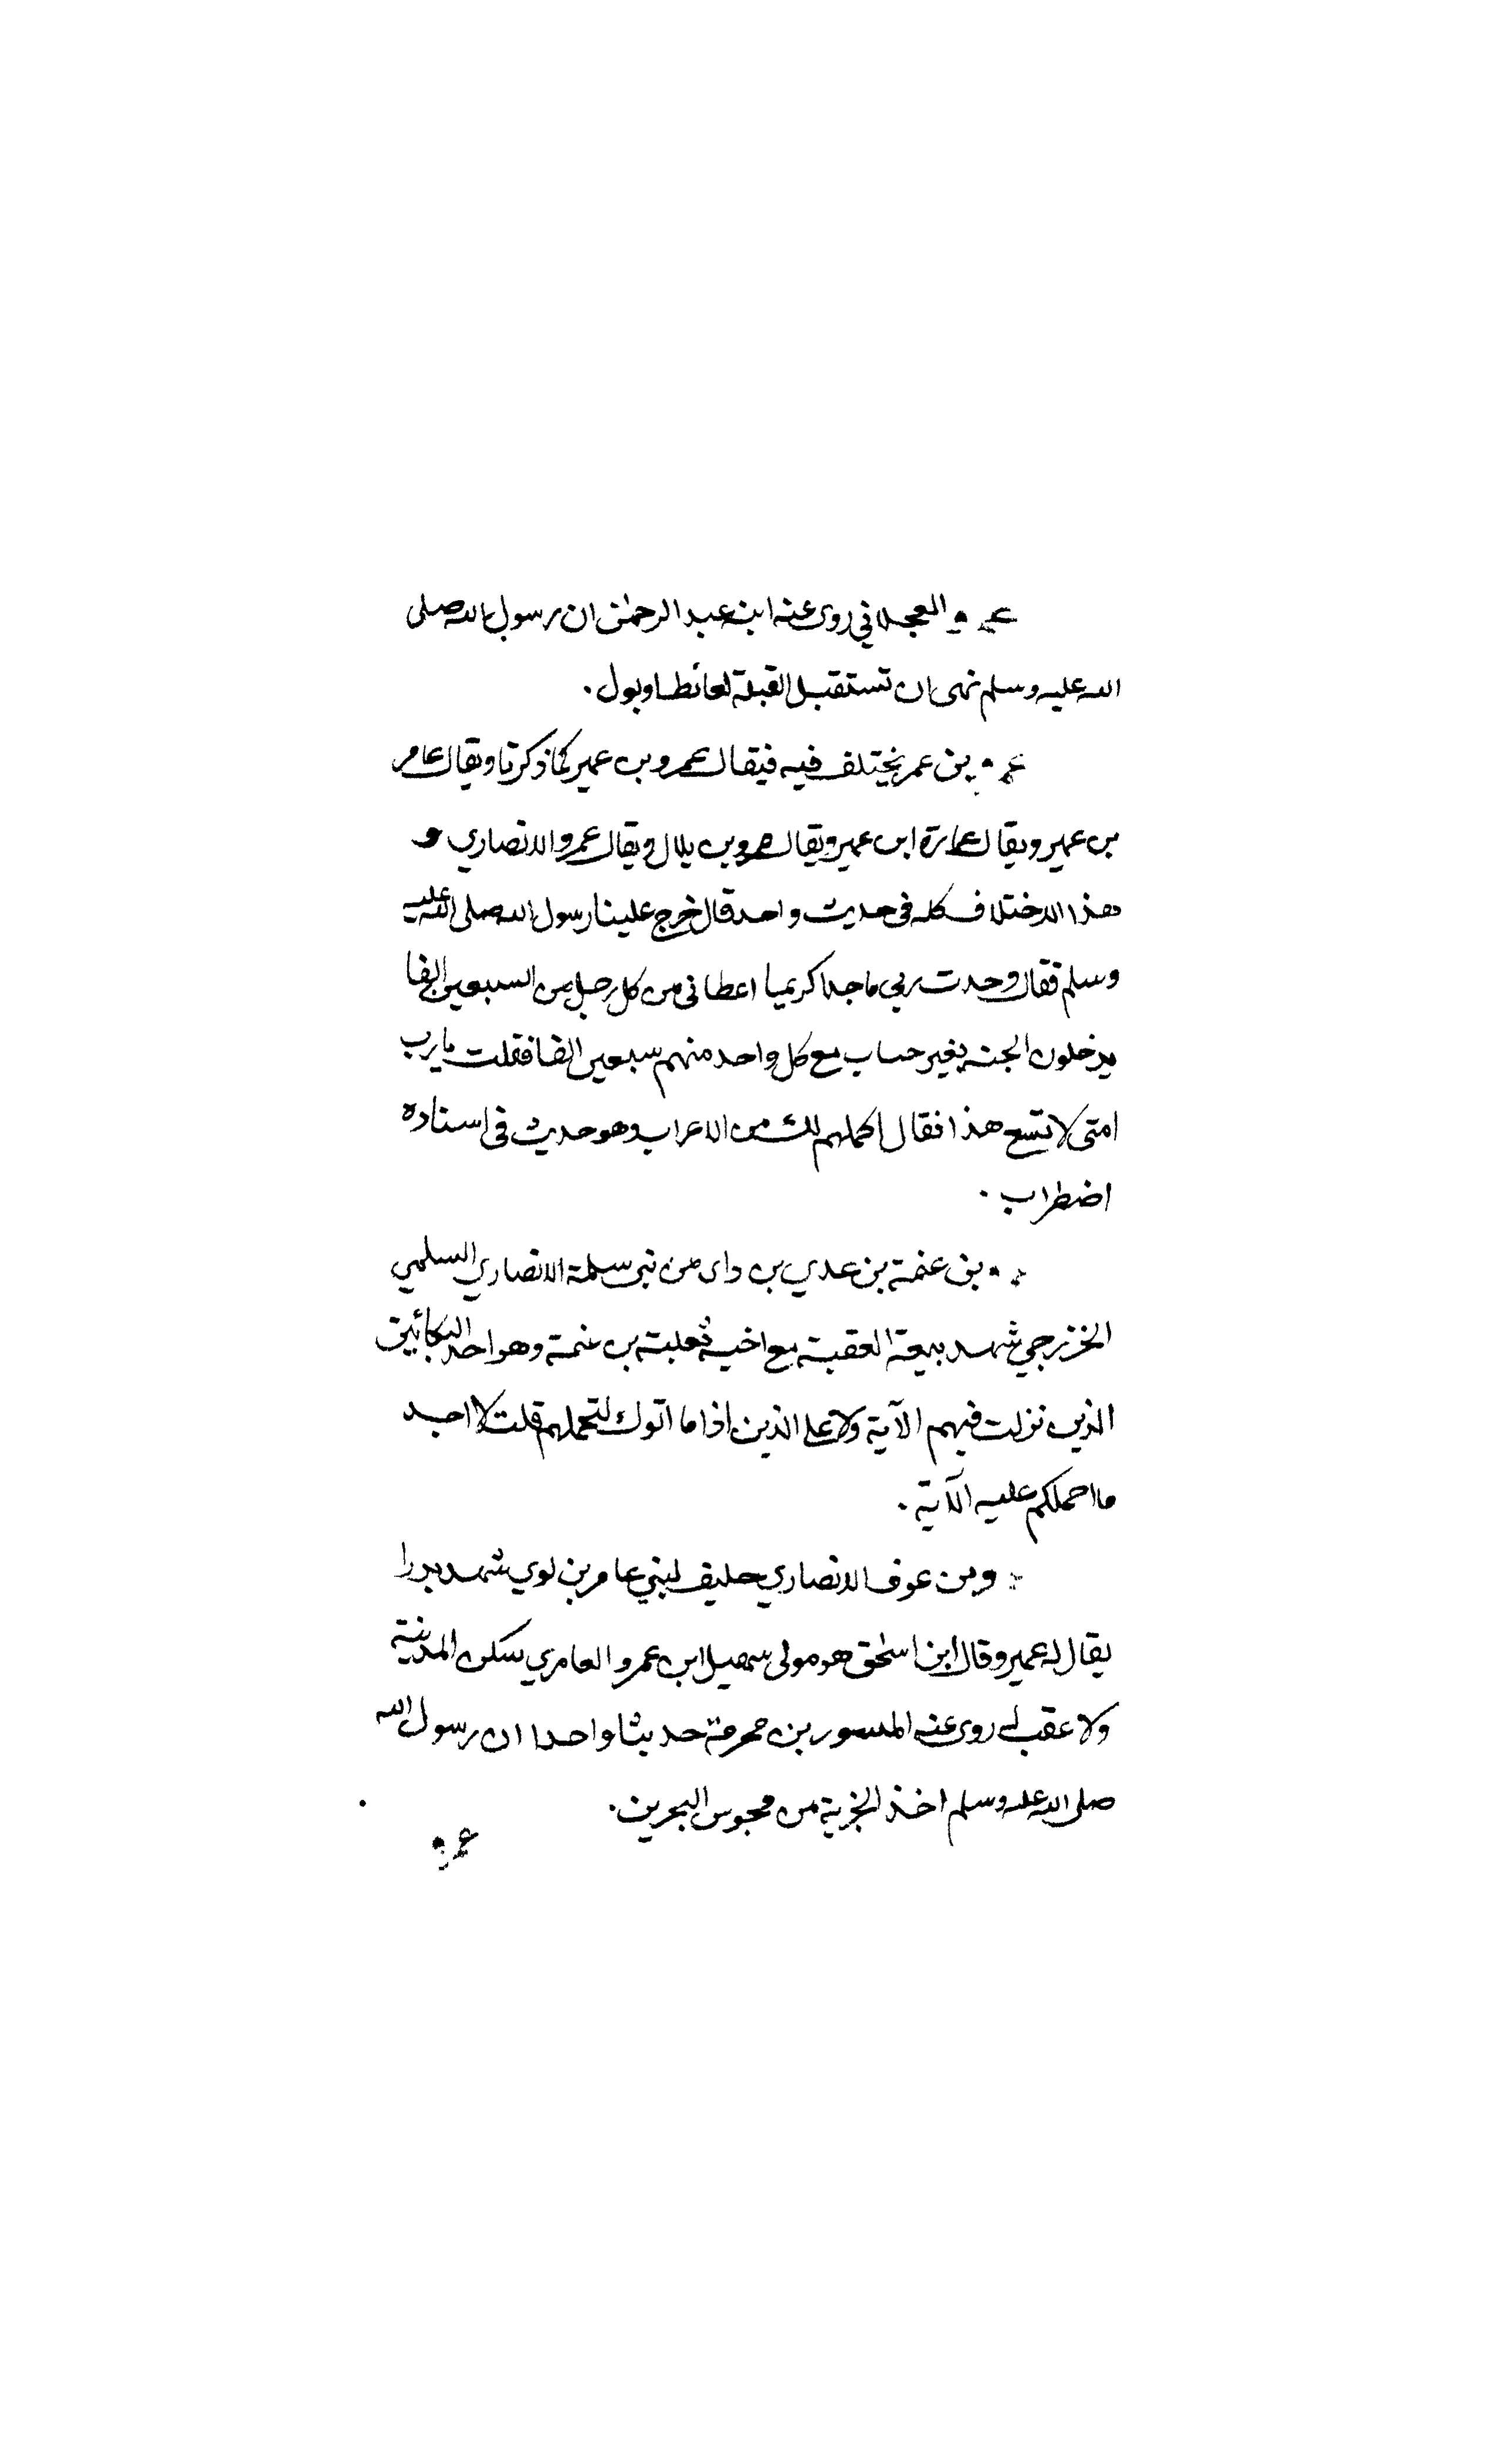 عمرو العجلاني روى عنه ابنه عبد الرحمٰن ان رسول الله صلى
الله عليه وسلم نهى ان تستقبل القبلة لغائط او بول .
بن عمير يختلف فيه فيقال عمرو بن عمير كما ذكرنا ويقال عامر
بن عمير ويقال عمارة ابن عمير ويقال عمرو بن بلال ويقال عمرو الانصاري و
هذا الاختلاف كله في حديث واحد قال خرج علينا رسول الله صلى الله عليه
وسلم فقال وجدت ربي ماجدا كريما اعطاني من كل رجل من السبعين الفا
يدخلون الجنة بغير حساب مع كل واحد منهم سبعين الفا فقلت يا رب
امتى لا تسع هذا فقال اكملهم لك من الاعراب وهو حديث في اسناده
اضطراب .
بن عنمة بن عدي بن من بني سلمة الانصاري السلمي
الخزرجي شهد بيعة العقبة مع اخيه ثعلبة بن عنمة وهو احد البكائين
الذين نزلت فيهم الآية ولا على الذين اذا ما اتوك لتحملهم قلت لا اجد
ما احملكم عليه الآية .
و بن عوف الانصاري حليف لبني عامر بن لوي شهد بدرا
يقال له عمير وقال ابن اسحٰق هو مولى سهيل ابن عمرو العامري سكن المدينة
ولا عقب له روى عنه المسور بن مخرمة حديثا واحدا ان رسول الله
صلى الله عليه وسلم اخذ الجزية من مجوس البحرين .
عمرو